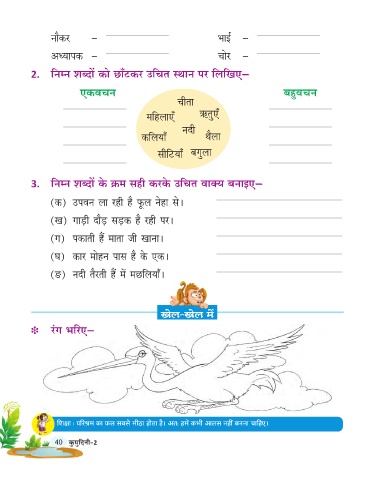 नौकर – भाई –
अध्यापक – चोर –
2. निम्न शब्दों को छाँटकर उचित स्थान पर लिखिए–
एकवचन बहुवचन
चीता
महिलाएँ ऋतुएँ
नदी
कलियाँ थैला
सीटियाँ बगुला
3. निम्न शब्दों के क्रम सही करके उचित वाक्य बनाइए–
(क) उपवन ला रही है फूल नेहा से।
(ख) गाड़ी दौड़ सड़क है रही पर।
(ग) पकाती हैं माता जी खाना।
(घ) कार मोहन पास है के एक।
(ङ) नदी तैरती हैं में मछलियाँ।
खेल-खेल में
❉ रंग भरिए–
शिक्षा : परिश्रम का फल सबसे मीठा होता है। अतः हमें कभी आलस नहीं करना चाहिए।
40 कुमुदिनी-2